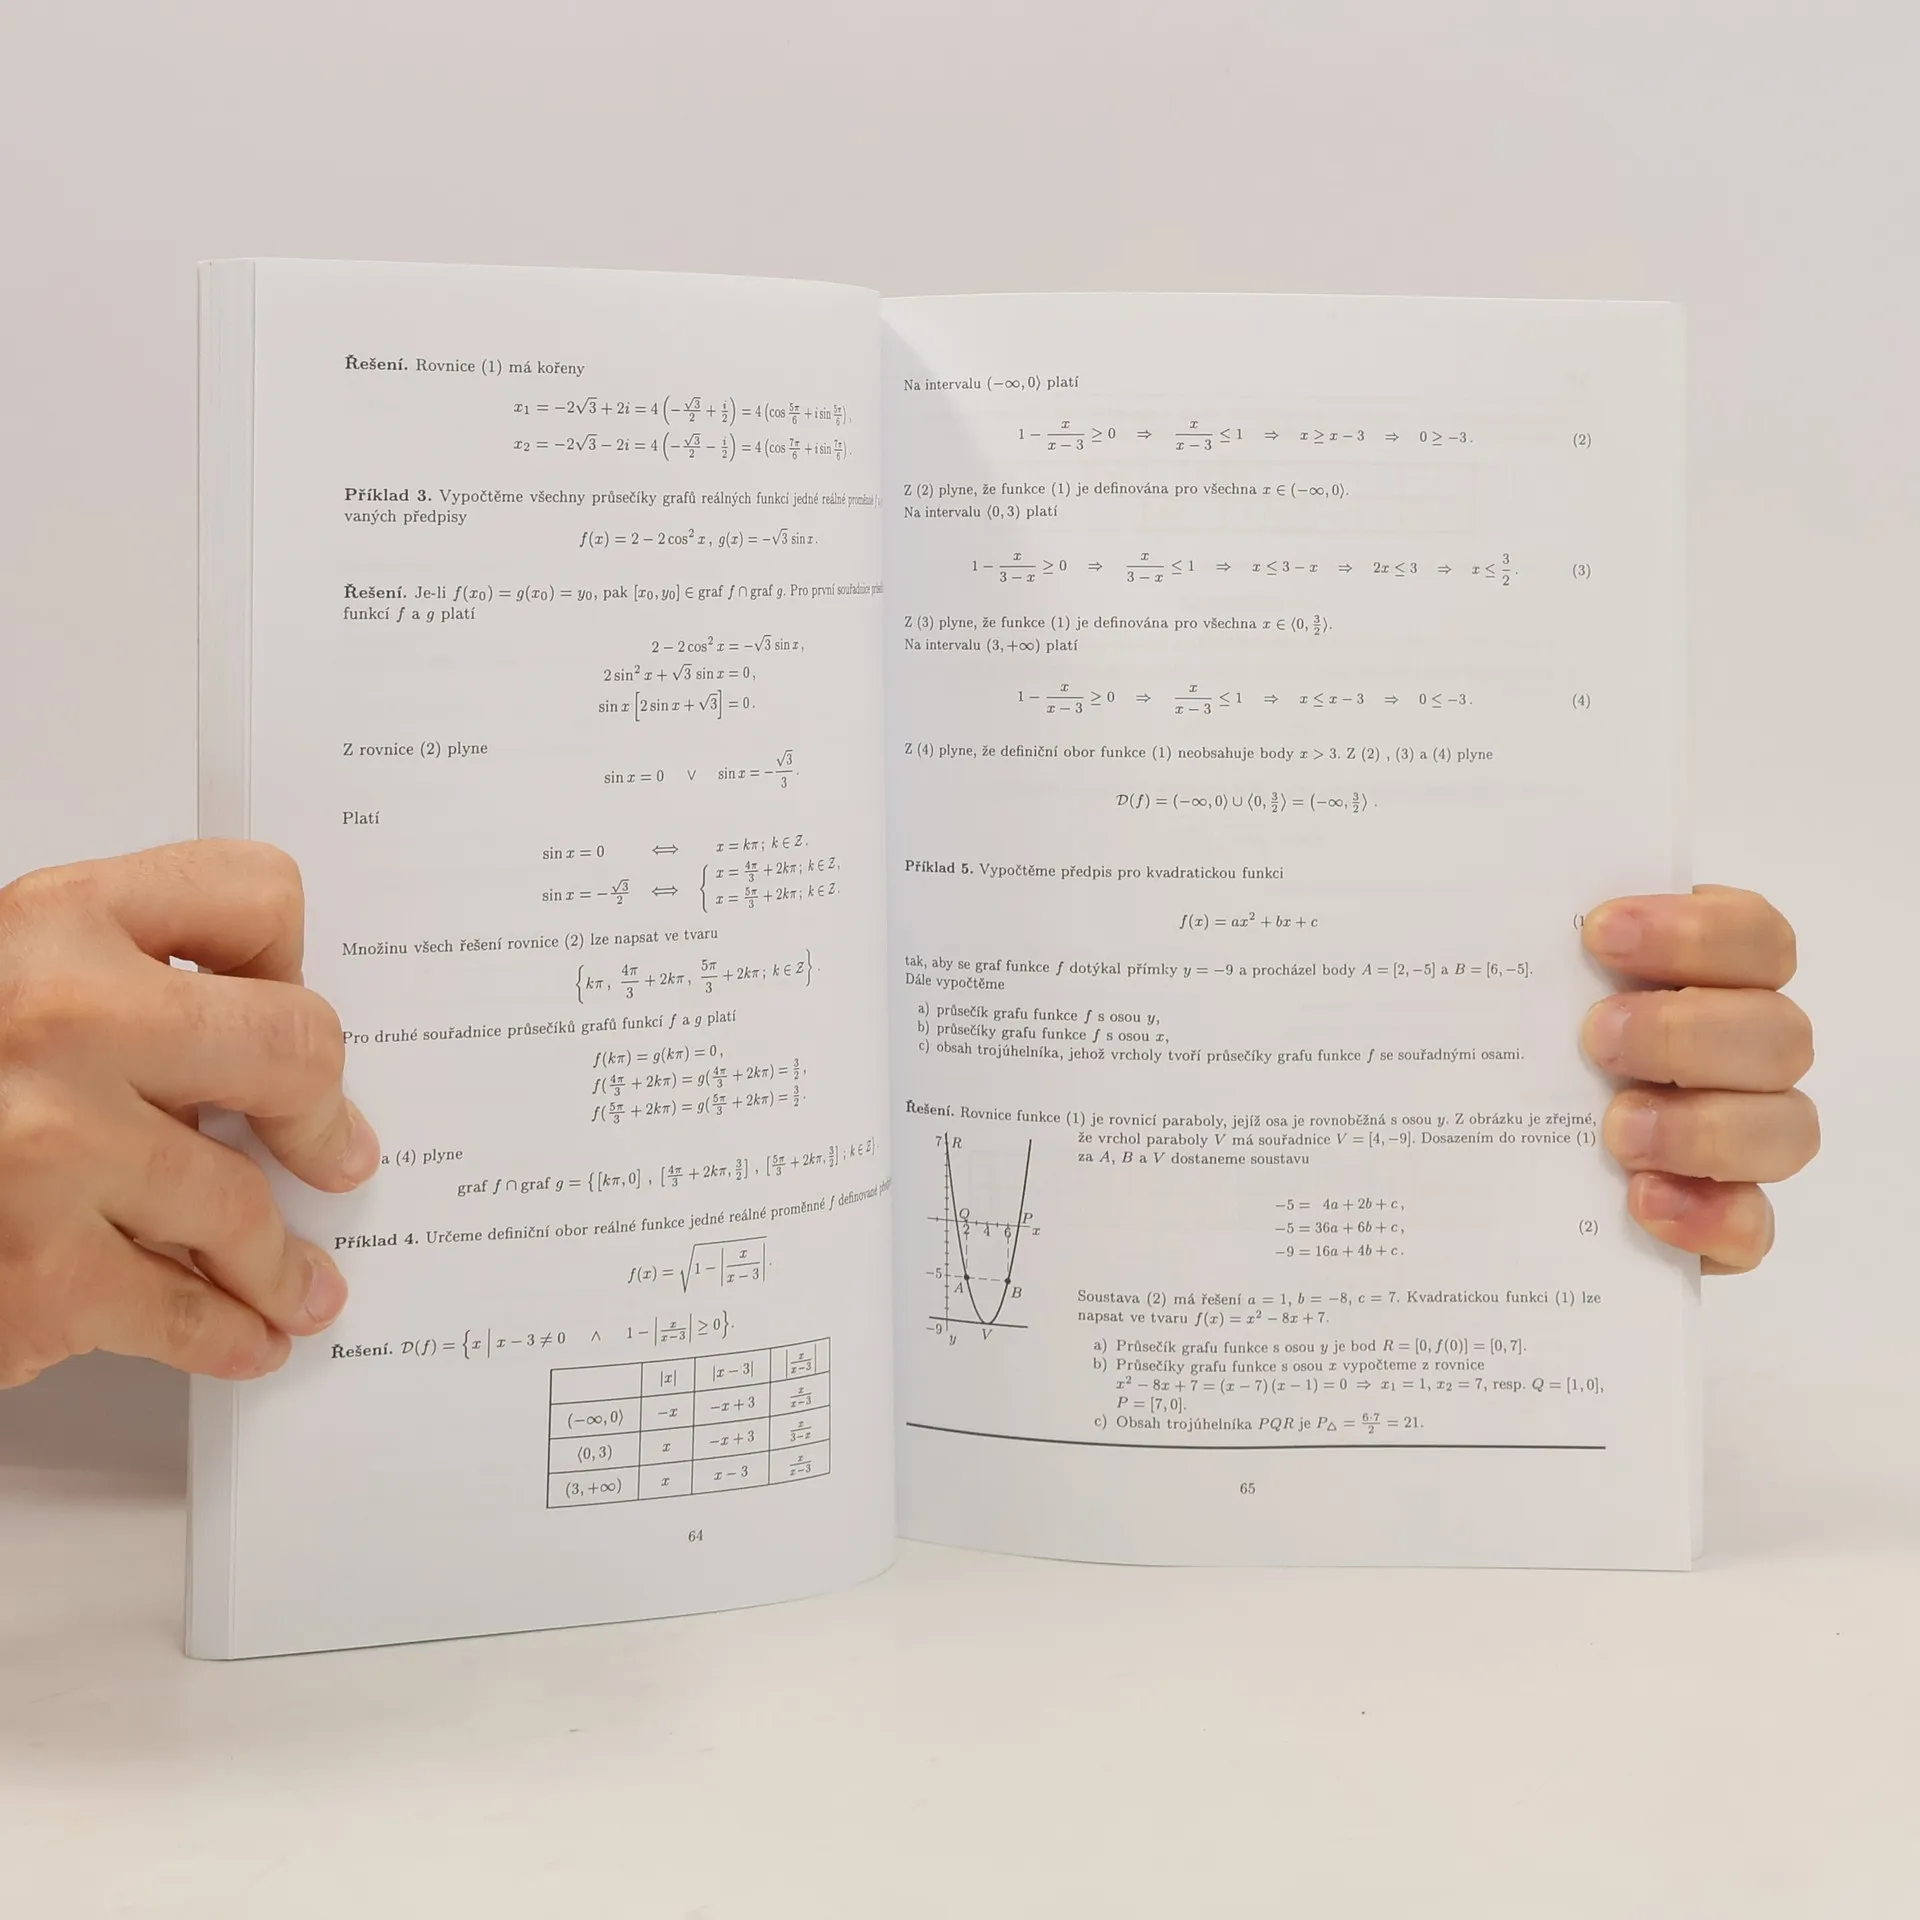 Řešení. Rovnice (1) má kořeny
x₁ = −2√3 + 2i = 4 (−√3/2 + i/2) = 4 (cos 5π/6 + i sin 5π/6),
x₂ = −2√3 − 2i = 4 (−√3/2 − i/2) = 4 (cos 7π/6 + i sin 7π/6).
Příklad 3. Vypočtěme všechny průsečíky grafů reálných funkcí jedné reálné proměnné
vaných předpisy
f(x) = 2 − 2 cos² x , g(x) = −√3 sin x.
Řešení. Je-li f(x₀) = g(x₀) = y₀, pak [x₀, y₀] ∈ graf f ∩ graf g. Pro první souřadnice
funkcí f a g platí
2 − 2 cos² x = −√3 sin x,
2 sin² x + √3 sin x = 0,
sin x [2 sin x + √3] = 0.
Z rovnice (2) plyne
sin x = 0 ∨ sin x = −√3/3.
Platí
sin x = 0 ⟺ x = kπ; k ∈ Z.
sin x = −√3/2 ⟺ { x = 4π/3 + 2kπ; k ∈ Z,
x = 5π/3 + 2kπ; k ∈ Z.
Množinu všech řešení rovnice (2) lze napsat ve tvaru
{kπ, 4π/3 + 2kπ, 5π/3 + 2kπ; k ∈ Z}.
Pro druhé souřadnice průsečíků grafů funkcí f a g platí
f(kπ) = g(kπ) = 0,
f(4π/3 + 2kπ) = g(4π/3 + 2kπ) = 3/2,
f(5π/3 + 2kπ) = g(5π/3 + 2kπ) = 3/2.
a (4) plyne
graf f ∩ graf g = {[kπ, 0] , [4π/3 + 2kπ, 3/2] , [5π/3 + 2kπ, 3/2] ; k ∈ Z}.
Příklad 4. Určeme definiční obor reálné funkce jedné reálné proměnné f definované
f(x) = √(1 − |x/(x − 3)|).
Řešení. D(f) = {x | x − 3 ≠ 0 ∧ 1 − |x/(x−3)| ≥ 0}.
|x| |x − 3| |x/(x−3)|
(−∞, 0) −x −x + 3 x/(x−3)
⟨0, 3) x −x + 3 x/(3−x)
(3, +∞) x x − 3 x/(x−3)
64
Na intervalu (−∞, 0⟩ platí
1 − x/(x − 3) ≥ 0 ⇒ x/(x − 3) ≤ 1 ⇒ x ≥ x − 3 ⇒ 0 ≥ −3. (2)
Z (2) plyne, že funkce (1) je definována pro všechna x ∈ (−∞, 0⟩.
Na intervalu ⟨0, 3) platí
1 − x/(3 − x) ≥ 0 ⇒ x/(3 − x) ≤ 1 ⇒ x ≤ 3 − x ⇒ 2x ≤ 3 ⇒ x ≤ 3/2. (3)
Z (3) plyne, že funkce (1) je definována pro všechna x ∈ ⟨0, 3/2⟩.
Na intervalu (3, +∞) platí
1 − x/(x − 3) ≥ 0 ⇒ x/(x − 3) ≤ 1 ⇒ x ≤ x − 3 ⇒ 0 ≤ −3. (4)
Z (4) plyne, že definiční obor funkce (1) neobsahuje body x > 3. Z (2) , (3) a (4) plyne
D(f) = (−∞, 0⟩ ∪ ⟨0, 3/2⟩ = (−∞, 3/2⟩ .
Příklad 5. Vypočtěme předpis pro kvadratickou funkci
f(x) = ax² + bx + c (1
tak, aby se graf funkce f dotýkal přímky y = −9 a procházel body A = [2, −5] a B = [6, −5].
Dále vypočtěme
a) průsečík grafu funkce f s osou y,
b) průsečíky grafu funkce f s osou x,
c) obsah trojúhelníka, jehož vrcholy tvoří průsečíky grafu funkce f se souřadnými osami.
Řešení. Rovnice funkce (1) je rovnicí paraboly, jejíž osa je rovnoběžná s osou y. Z obrázku je zřejmé,
že vrchol paraboly V má souřadnice V = [4, −9]. Dosazením do rovnice (1)
za A, B a V dostaneme soustavu
7 R
Q P
2 4 6 x
−5
A B
−9
y V
−5 = 4a + 2b + c,
−5 = 36a + 6b + c, (2)
−9 = 16a + 4b + c.
Soustava (2) má řešení a = 1, b = −8, c = 7. Kvadratickou funkci (1) lze
napsat ve tvaru f(x) = x² − 8x + 7.
a) Průsečík grafu funkce s osou y je bod R = [0, f(0)] = [0, 7].
b) Průsečíky grafu funkce s osou x vypočteme z rovnice
x² − 8x + 7 = (x − 7)(x − 1) = 0 ⇒ x₁ = 1, x₂ = 7, resp. Q = [1, 0],
P = [7, 0].
c) Obsah trojúhelníka PQR je P△ = 6·7/2 = 21.
65